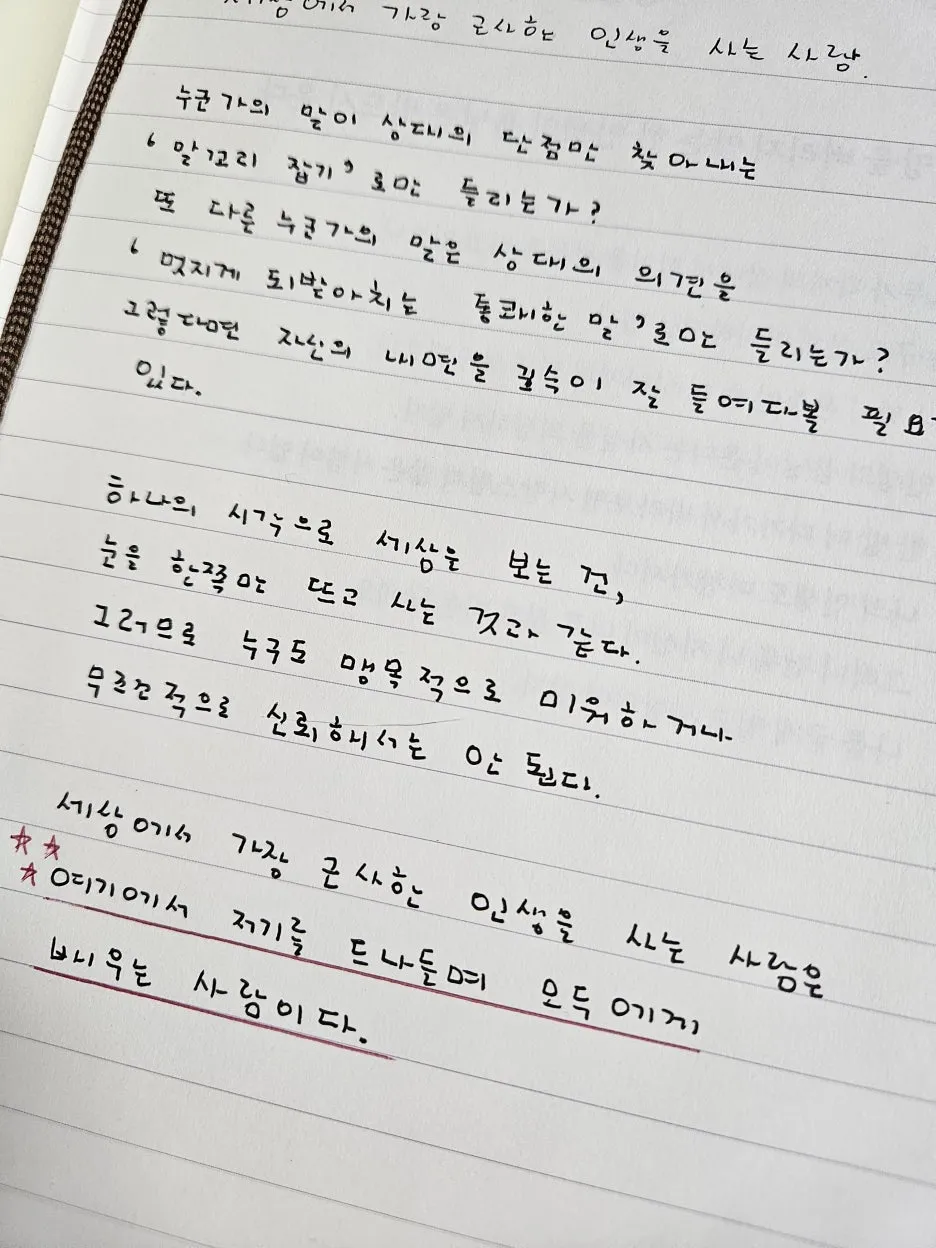 세상에서 가장 근사한 인생을 사는 사람.
누군가의 말이 상대의 단점만 찾아내는
‘말꼬리 잡기’로만 들리는가?
또 다른 누군가의 말은 상대의 의견을
‘멋지게 되받아치는 통쾌한 말’로만 들리는가?
그렇다면 자신의 내면을 깊숙이 잘 들여다볼 필요
있다.
하나의 시각으로 세상을 보는 건,
눈을 한쪽만 뜨고 사는 것과 같다.
그러므로 누구도 맹목적으로 미워하거나
무조건적으로 신뢰해서는 안 된다.
세상에서 가장 근사한 인생을 사는 사람은
여기에서 저기를 드나들며 모두에게
배우는 사람이다.